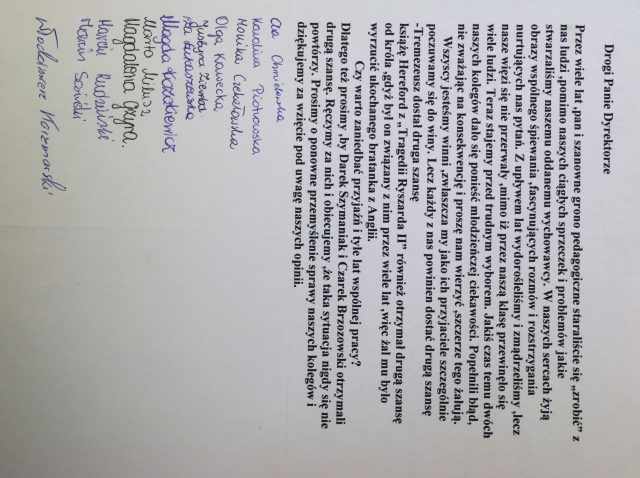 Drogi Panie Dyrektorze
Przez wiele lat ,pan i szanowne grono pedagogiczne staraliście się „zrobić” z
nas ludzi ,pomimo naszych ciągłych sprzeczek i problemów jakie
stwarzaliśmy naszemu oddanemu wychowawcy. W naszych sercach żyją
obrazy wspólnego śpiewania ,fascynujących rozmów i rozstrzygania
nurtujących nas pytań. Z upływem lat wydorośleliśmy i zmądrzeliśmy ,lecz
nasze więzi się nie przerwały ,mimo iż przez naszą klasę przewinęło się
wiele ludzi. Teraz stajemy przed trudnym wyborem. Jakiś czas temu dwóch
naszych kolegów dało się ponieść młodzieńczej ciekawości. Popełnili błąd,
nie zważając na konsekwencje i proszę nam wierzyć ,szczerze tego żałują.
Wszyscy jesteśmy winni ,zwłaszcza my jako ich przyjaciele szczególnie
poczuwamy się do winy. Lecz każdy z nas powinien dostać drugą szansę
-Tremezeusz dostał druga szansę
książę Hereford z „Tragedii Ryszarda II” również otrzymał drugą szansę
od króla ,gdyż był on związany z nim przez wiele lat ,więc żal mu było
wyrzucić ukochanego bratanka z Anglii.
Czy warto zaniedbać przyjaźń i tyle lat wspólnej pracy?
Dlatego też prosimy ,by Darek Szymaniak i Czarek Brzozowski otrzymali
drugą szansę. Ręczymy za nich i obiecujemy ,że taka sytuacja nigdy się nie
powtórzy. Prosimy o ponowne przemyślenie sprawy naszych kolegów i
dziękujemy za wzięcie pod uwagę naszych opinii.
Karolina Piotrowska
Monika
Olga Kawecka
Justyna
Marta
Magdalena
Marcin
Marcin
Włodzimierz